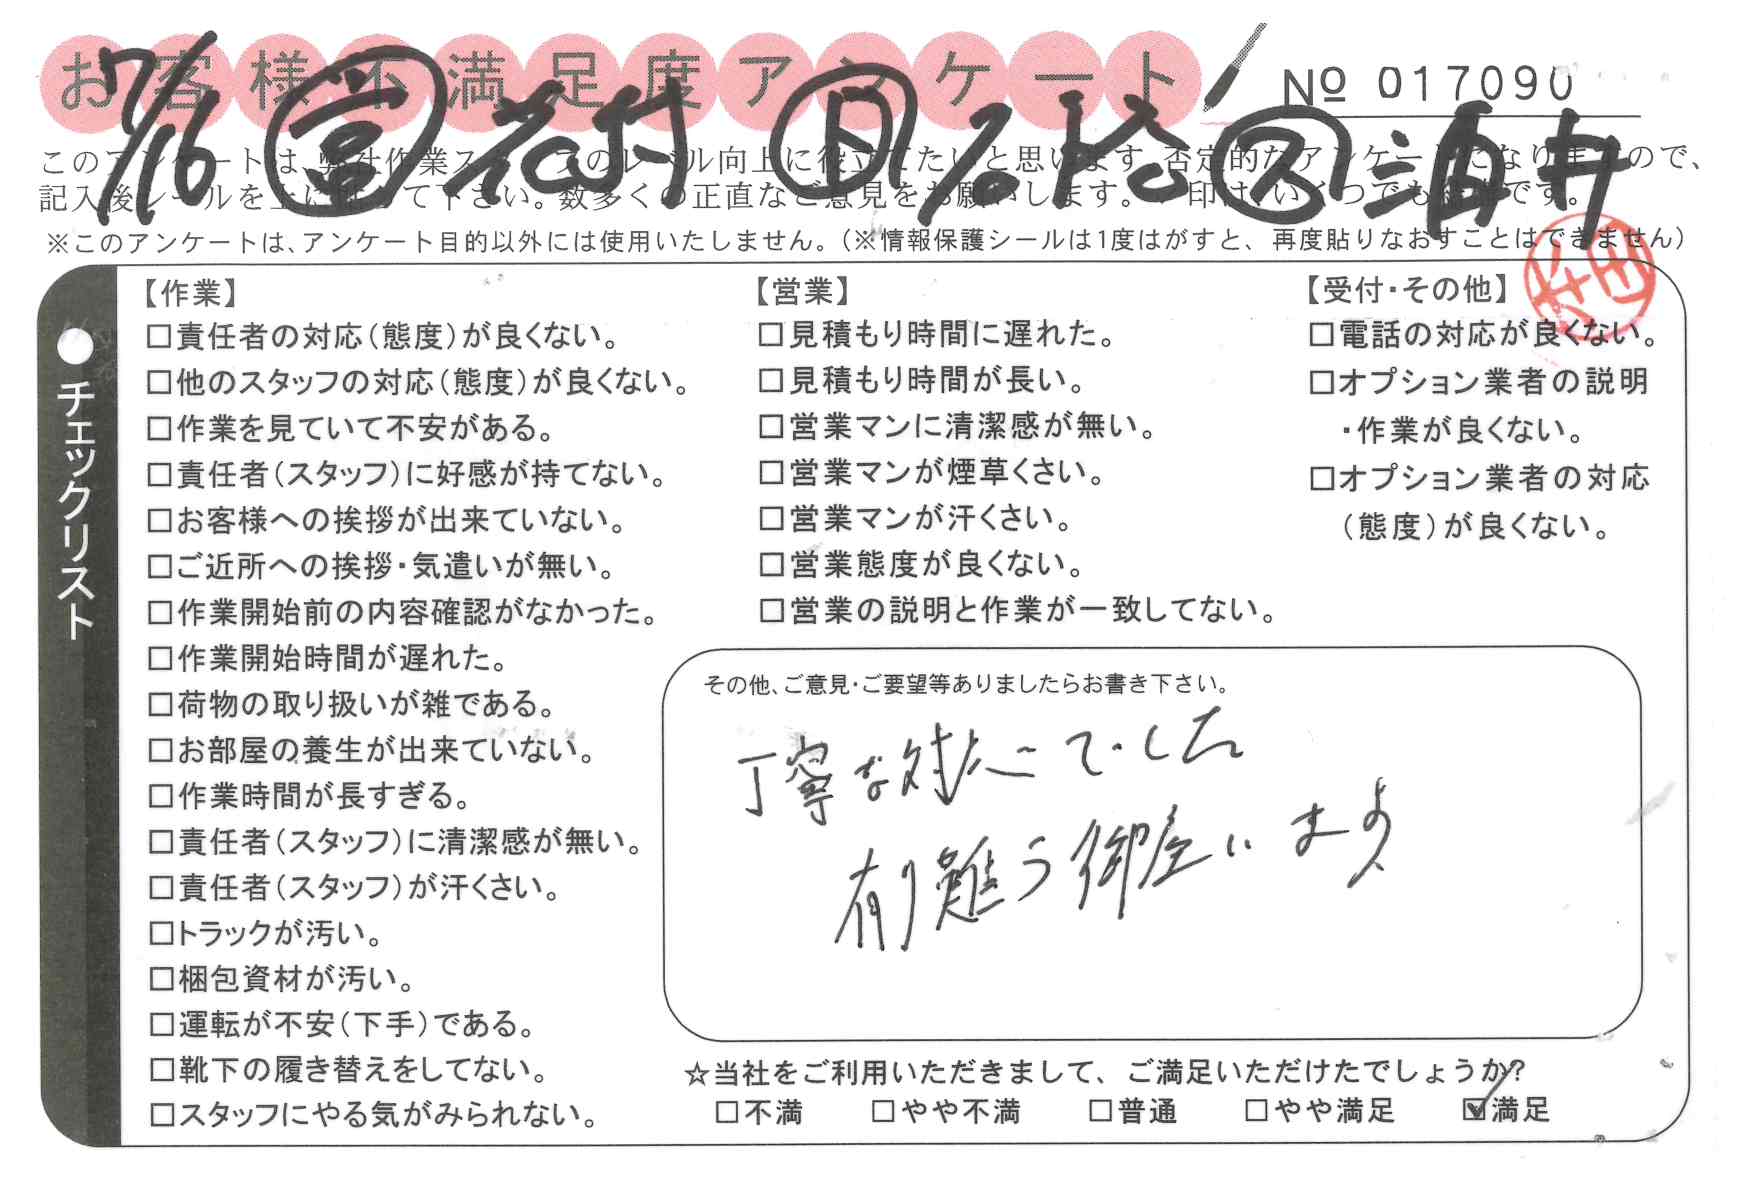 お客様不満足度アンケート
No 017090
7/16 営 花村 日 石腰 ス 酒井
このアンケートは、弊社作業スタッフのレベル向上に役立てたいと思います。否定的なアンケートになりますので、
記入後シールを上に貼って下さい。数多くの正直なご意見をお願いします。✓印は、いくつでも結構です。
※このアンケートは、アンケート目的以外には使用いたしません。(※情報保護シールは1度はがすと、再度貼りなおすことはできません)
●チェックリスト
【作業】
□責任者の対応(態度)が良くない。
□他のスタッフの対応(態度)が良くない。
□作業を見ていて不安がある。
□責任者(スタッフ)に好感が持てない。
□お客様への挨拶が出来ていない。
□ご近所への挨拶・気遣いが無い。
□作業開始前の内容確認がなかった。
□作業開始時間が遅れた。
□荷物の取り扱いが雑である。
□お部屋の養生が出来ていない。
□作業時間が長すぎる。
□責任者(スタッフ)に清潔感が無い。
□責任者(スタッフ)が汗くさい。
□トラックが汚い。
□梱包資材が汚い。
□運転が不安(下手)である。
□靴下の履き替えをしてない。
□スタッフにやる気がみられない。
【営業】
□見積もり時間に遅れた。
□見積もり時間が長い。
□営業マンに清潔感が無い。
□営業マンが煙草くさい。
□営業マンが汗くさい。
□営業態度が良くない。
□営業の説明と作業が一致してない。
【受付・その他】
□電話の対応が良くない。
□オプション業者の説明
・作業が良くない。
□オプション業者の対応
(態度)が良くない。
その他、ご意見・ご要望等ありましたらお書き下さい。
丁寧な対応でした
有難う御座います
☆当社をご利用いただきまして、ご満足いただけたでしょうか?
□不満 □やや不満 □普通 □やや満足 ☑満足